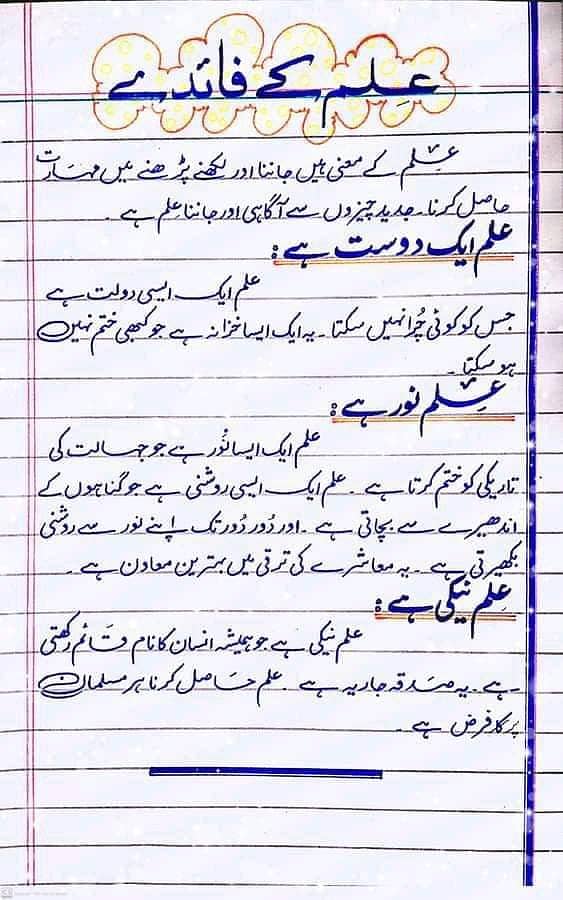 عِلم کے فائدے
عِلم کے معنی ہیں جاننا اور لکھنے پڑھنے میں مہارت
حاصل کرنا۔ جدید چیزوں سے آگاہی اور جاننا عِلم ہے۔
علم ایک دوست ہے:
علم ایک ایسی دولت ہے
جس کو کوئی چُرا نہیں سکتا۔ یہ ایک ایسا خزانہ ہے جو کبھی ختم نہیں
ہو سکتا۔
عِلم نور ہے:
علم ایک ایسا نُور ہے جو جہالت کی
تاریکی کو ختم کرتا ہے۔ علم ایک ایسی روشنی ہے جو گناہوں کے
اندھیرے سے بچاتی ہے۔ اور دُور دُور تک اپنے نور سے روشنی
بکھیرتی ہے۔ یہ معاشرے کی ترقی میں بہترین معاون ہے۔
عِلم نیکی ہے:
علم نیکی ہے جو ہمیشہ انسان کا نام قائم رکھتی
ہے۔ یہ صدقہ جاریہ ہے۔ علم حاصل کرنا ہر مسلمان
پر کا فرض ہے۔